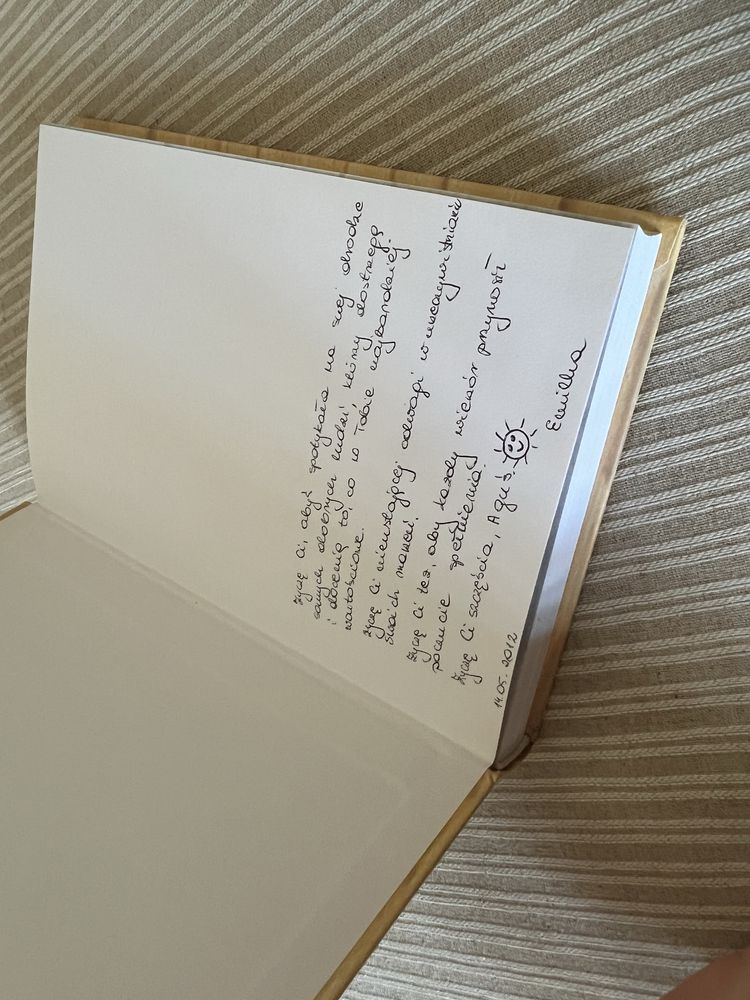 Życzę Ci, abyś spotykała na swej drodze
samych dobrych ludzi, którzy dostrzegą
i docenią to, co w Tobie najbardziej
wartościowe.
Życzę Ci niensłającej odwagi w urzeczywistnianiu
swoich marzeń.
Życzę Ci też, aby każdy wieczór przynosił
poczucie spełnienia.
Życzę Ci szczęścia, Aguś!
Emilka
14.05.2012